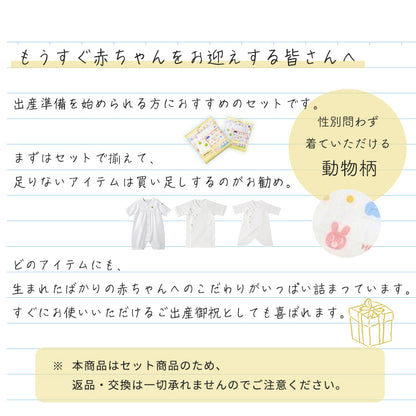 もうすぐ赤ちゃんをお迎えする皆さんへ
出産準備を始められる方におすすめのセットです。
性別問わず
着ていただける
動物柄
まずはセットで揃えて、
足りないアイテムは買い足しするのがお勧め。
どのアイテムにも、
生まれたばかりの赤ちゃんへのこだわりがいっぱい詰まっています。
すぐにお使いいただけるご出産御祝としても喜ばれます。
※ 本商品はセット商品のため、
返品・交換は一切承れませんのでご注意ください。